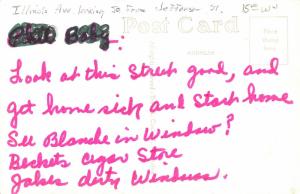 Illinois Ave looking So from Jefferson St. 15th W
Post Card
Look at this Street good, and
get home sick and Start home
See Blanche in Window?
Beckets Cigar Store
Jakes dirty Windows.